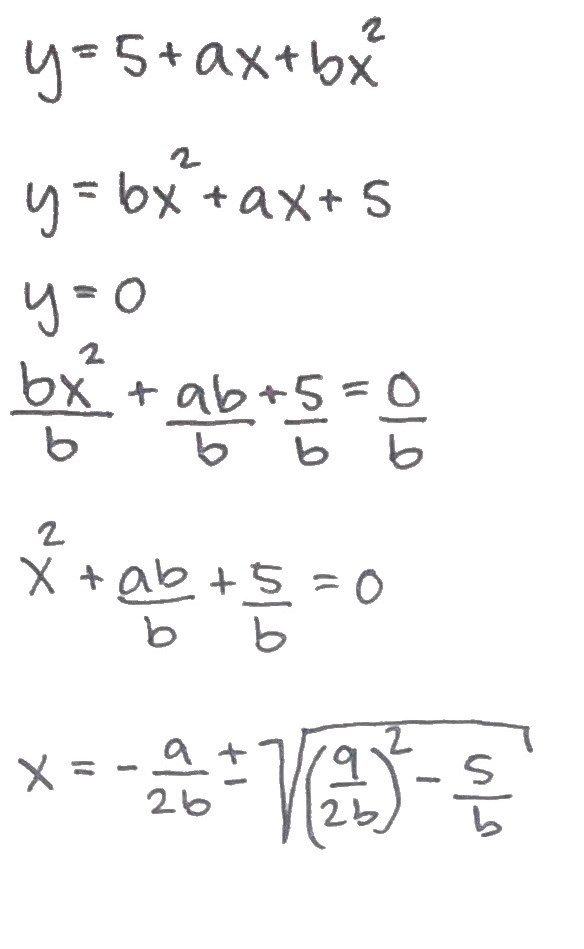 y = 5 + ax + bx²
y = bx² + ax + 5
y = 0
bx²/b + ab/b + 5/b = 0/b
x² + ab/b + 5/b = 0
x = -a/2b ± √((a/2b)² - 5/b)